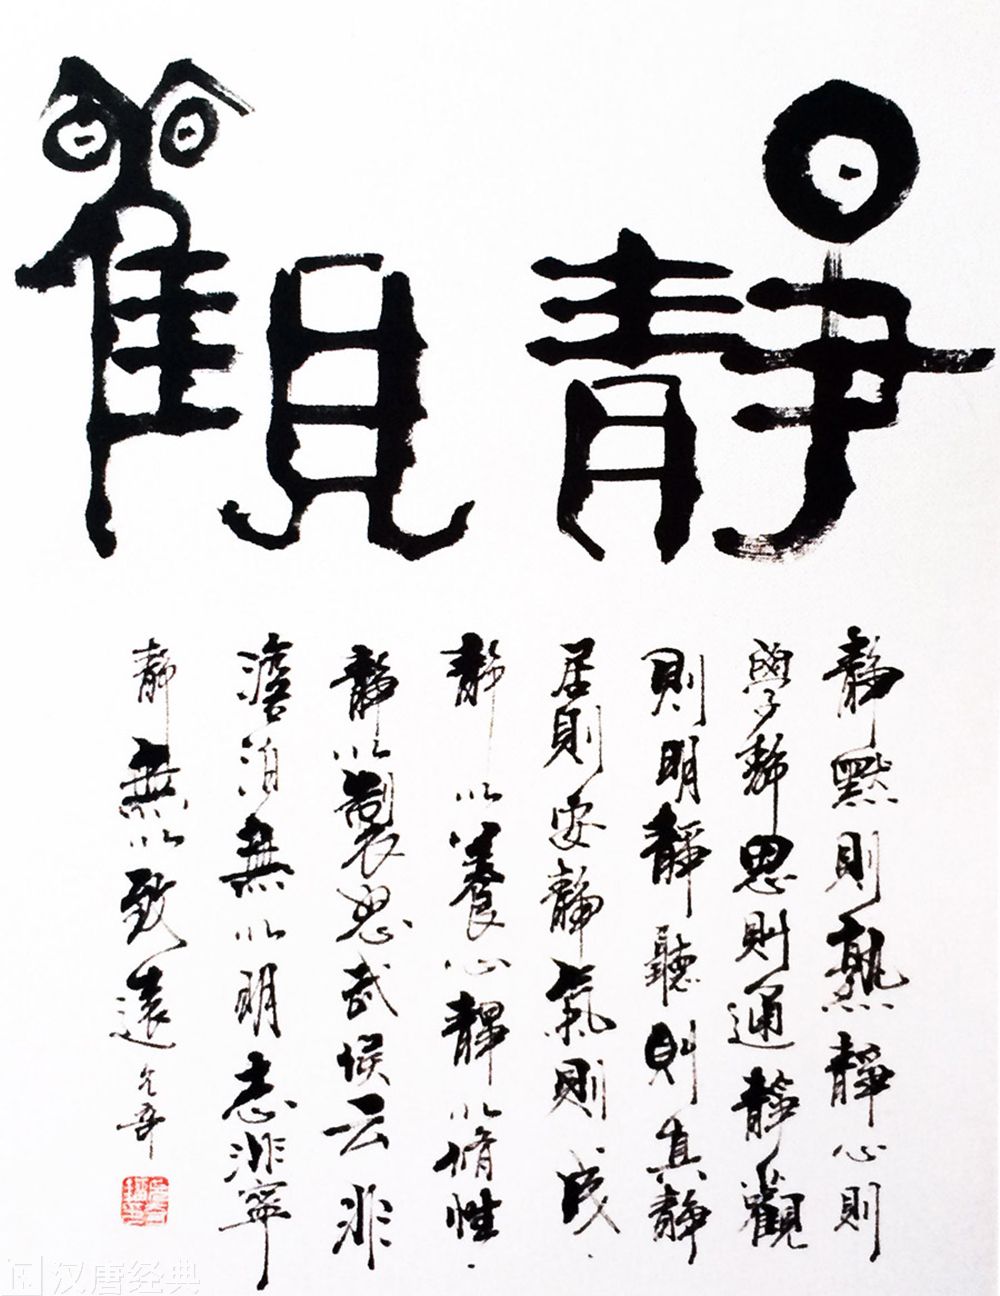 靜觀
靜默則熟靜心則
學靜思則通靜觀
則明靜聽則真靜
居則安靜氣則成
靜以養心靜以脩性
靜以製怒武侯云非
澹泊無以明志非寧
靜無以致遠
汉唐经典